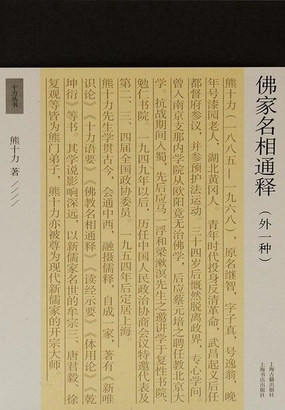 佛家名相通释
（外一种）
熊十力（一八八五—一九六八），原名继智，字子真，号逸翁，晚
年号漆园老人，湖北黄冈人。青年时代投身反清革命，武昌起义后任
都督府参议，并参预护法运动。三十四岁后慨然脱离政界，专心学问，
曾入南京支那内学院从欧阳竟无治佛学，后应蔡元培之聘任教北京大
学。抗战期间入蜀，先后应马一浮和梁漱溟先生之邀讲学于复性书院、
勉仁书院。一九四九年以后，历任中国人民政治协商会议特邀代表及
第二、三、四届全国政协委员。一九五四年后定居上海。
熊十力先生学贯古今，会通中西，融摄儒释，自成一家，著有《新唯
识论》《十力语要》《佛教名相通释》《读经示要》《体用论》《乾
坤衍》等书。其学说影响深远，以新儒家名世的牟宗三、唐君毅、徐
复观等皆为熊门弟子，熊十力亦被尊为现代新儒家的开宗大师
十力丛书
熊十力 著
上海古籍出版社
上海书店出版社